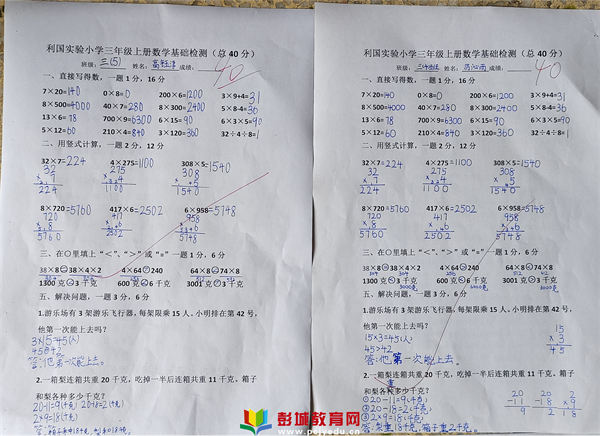 利国实验小学三年级上册数学基础检测（总 40 分）
班级：三(5) 姓名： 成绩：40
一、直接写得数，一题 1 分，16 分
7×20=140 0×8=0 200×6=1200 3×9+4=31
8×500=4000 40×7=280 8×300=2400 5×8-4=36
13×6=78 700×9=6300 6×15=90 6×3×5=90
5×12=60 210×4=840 3×120=360 32÷4÷8=1
二、用竖式计算，一题 2 分，12 分
32×7=224 4×275=1100 308×5=1540
32 275 308
224 1100 1540
8×720=5760 417×6=2502 6×958=5748
720 417 958
5760 2502 5748
三、在○里填上“<”、“>”或“=”一题 1 分，6 分
38×8=38×4×2 4×64>240 64×8<74×8
1300 克<3 千克 600 克<6 千克 3001 克>3 千克
五、解决问题，一题 3 分，6 分
1.游乐场有 3 架游乐飞行器，每架限乘 15 人。小明排在第 42 号，
他第一次能上去吗？
3×15=45(人)
45>42
答:他第一次能上去。
2.一箱梨连箱共重 20 千克，吃掉一半后连箱共重 11 千克。箱子
和梨各种多少千克？
20-11=9(千克) 20-18=2(千克)
2×9=18(千克)
利国实验小学三年级上册数学基础检测（总 40 分）
班级： 姓名： 成绩：40
一、直接写得数，一题 1 分，16 分
7×20=140 0×8=0 200×6=1200 3×9+4=31
8×500=4000 40×7=280 8×300=2400 5×8-4=36
13×6=78 700×9=6300 6×15=90 6×3×5=90
5×12=60 210×4=840 3×120=360 32÷4÷8=1
二、用竖式计算，一题 2 分，12 分
32×7=224 4×275=1100 308×5=1540
32 275 308
224 1100 1540
8×720=5760 417×6=2502 6×958=5748
720 417 958
5760 2502 5748
三、在○里填上“<”、“>”或“=”一题 1 分，6 分
38×8=38×4×2 4×64>240 64×8<74×8
1300 克<3 千克 600 克<6 千克 3001 克>3 千克
五、解决问题，一题 3 分，6 分
1.游乐场有 3 架游乐飞行器，每架限乘 15 人。小明排在第 42 号，
他第一次能上去吗？
15×3=45(人)
45>42
答:他第一次能上去。
15
×3
45
2.一箱梨连箱共重 20 千克，吃掉一半后连箱共重 11 千克。箱子
和梨各种多少千克？
①20-11=9(千克)
②20-18=2(千克)
③2×9=18(千克)
答:梨重18千克,箱子重2千克。
20 20 2
-11 -18 ×9
9 2 18
彭城教育网
www.pcjyedu.cn